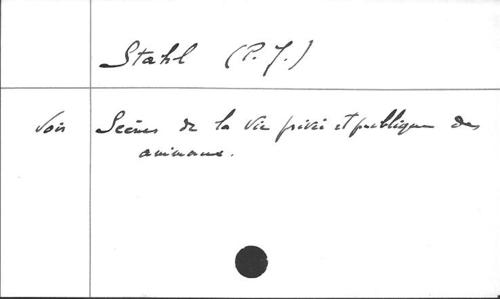 Stahl (P. J.)
Voir Scènes de la Vie privée et publique des
animaux.